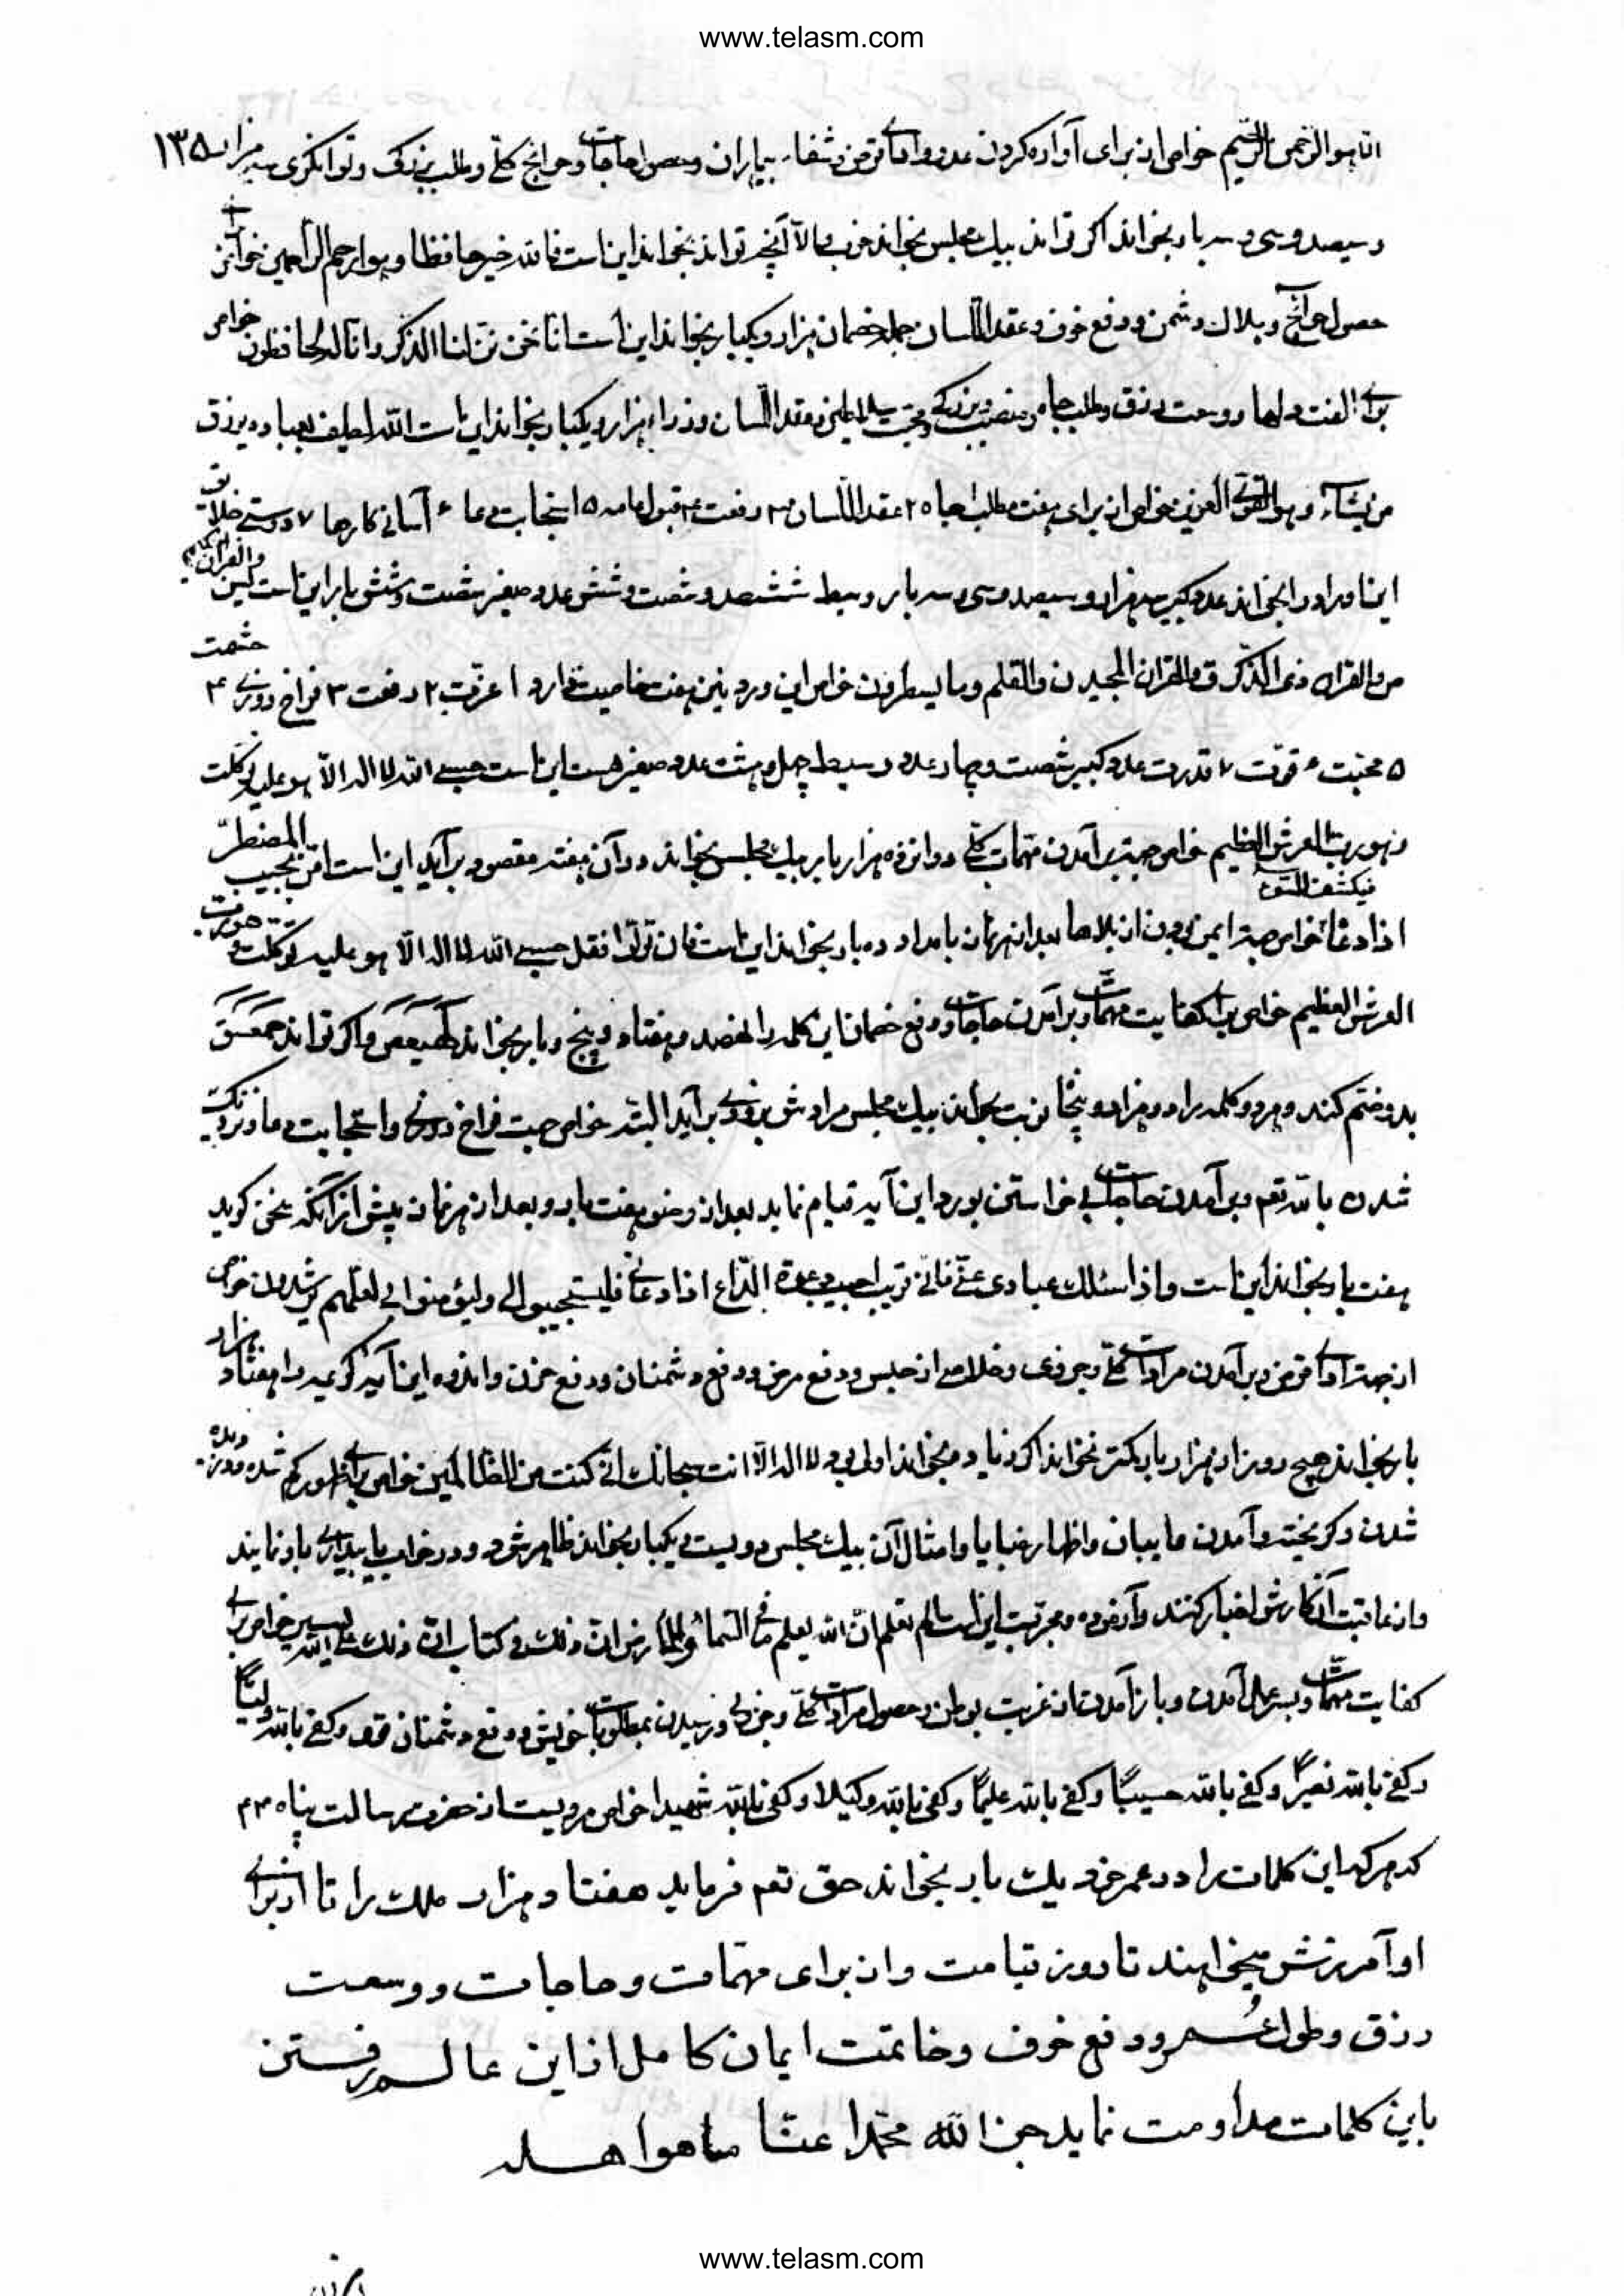 www.telasm.com
۱۳۵
انّه هو الرّحمن الرّحیم خواص از برای آواره کردن عدو و ادای قرض و شفاء بیماران و حصول حاجات و حوایج کلّی و طلب بزرگی و توانگری سه هزار
و سیصد و سی و سه بار بخواند اگر تواند بیک مجلس بخواند خوب والّا آنچه تواند بخواند این است فالله خیر حافظا و هو ارحم الراحمین خواص
حصول حوایج و هلاک دشمن و دفع خوف و عقد اللّسان جمله خصمان هزار و یکبار بخواند این است انّا نحن نزّلنا الذّکر و انّا له لحافظون خواص
برای الفت دلها و وسعت رزق و طلب جاه و منصب و بزرگی و محبّت سلاطین و عقد اللّسان وزراء هزار و یکبار بخواند این است الله لطیف بعباده یرزق
من یشاء و هو القویّ العزیز خواص از برای هفت مطلب ۱ جاه ۲ عقد اللّسان ۳ رفعت ۴ قبول عامه ۵ استجابت دعا ۶ آسانی کارها ۷ دوستی خلایق
این اوراد را بخواند عدد کبیر سه هزار و سیصد و سی و سه بار وسیط ششصد و شصت و شش عدد صغیر شصت و شش بار این است یس والقرآن الحکیم
ص والقرآن ذی الذّکر ق والقرآن المجید ن والقلم و ما یسطرون خواص این ورد نیز هفت خاصیت دارد ۱ عزّت ۲ رفعت ۳ فراخ روزی ۴ حشمت
۵ محبّت ۶ قوّت ۷ قدرت عدد کبیر شصت و چهار عدد وسیط چهل و هشت عدد صغیر این است حسبی الله لا اله الّا هو علیه توکّلت
و هو ربّ العرش العظیم خواص جهة برآمدن مهمّات کلّی دوازده هزار بار بیک مجلس بخواند در آن هفته مقصود برآید این است امّن یجیب المضطرّ
اذا دعاه و یکشف السّوء خواص جهة ایمن بودن از بلاها بعد از نماز بامداد ده بار بخواند این است فان تولّوا فقل حسبی الله لا اله الّا هو علیه توکّلت و هو ربّ
العرش العظیم خواص برای کفایت مهمّات و برآمدن حاجات و دفع خصمان این کلمه را نهصد و هفتاد و پنج بار بخواند کهیعص و اگر تواند حمعسق
بدو ختم کند و هر دو کلمه را دو هزار و پنجاه نوبت بخواند بیک مجلس مرادش بزودی برآید البتّه خواص جهت فراخ روزی و استجابت دعا و نزدیک
شدن بالله تعم و برآمدن حاجات بی خواستن بورد این آیه قیام نماید بعد از وضو هفت بار و بعد از هر نماز پیش از آنکه سخن گوید
هفت بار بخواند این است و اذا سئلک عبادی عنّی فانّی قریب اجیب دعوة الدّاع اذا دعان فلیستجیبوا لی و لیؤمنوا بی لعلّهم یرشدون خواص
از جهة ادای قرض و برآمدن مرادات کلّی و جزوی و خلاصی از حبس و دفع مرض و دفع دشمنان و دفع حزن و اندوه این آیه کریمه را هفتاد هزار
بار بخواند هیچ روز از هزار بار کمتر نخواند اگر زیاده بخواند اولی بود لا اله الّا انت سبحانک انّی کنت من الظّالمین خواص برای ظهور گم شده و دزد برده
شدن و گریخته و آمدن غایبان و اظهار خبایا و امثال آن بیک مجلس دویست و یکبار بخواند ظاهر شود و در خواب یا بیداری باز نمایند
و از عاقبت آن کارش اخبار کنند و آزموده و مجرّبست این است الم تعلم انّ الله یعلم ما فی السّماء والارض انّ ذلک فی کتاب انّ ذلک علی الله یسیر خواص برای
کفایت مهمّات و بسر عمل آمدن و باز آمدن از غربت بوطن و حصول مرادات کلّی و جزوی و رسیدن بمطلوبات خویش و دفع دشمنان قوی و کفی بالله ولیّاً
و کفی بالله نصیراً و کفی بالله حسیباً و کفی بالله علیماً و کفی بالله وکیلا و کفی بالله شهیدا خواص مرویست از حضرت رسالت پناه
که هر که این کلمات را در عمر خود یک بار بخواند حق تعم فرماید هفتاد هزار ملک را تا از برای
او آمرزش میخواهند تا روز قیامت و از برای مهمّات و حاجات و وسعت
رزق و طول عُمر و دفع خوف و خاتمت ایمان کامل از این عالم رفتن
باین کلمات مداومت نماید جزی الله محمّدا عنّا ما هو اهله
www.telasm.com